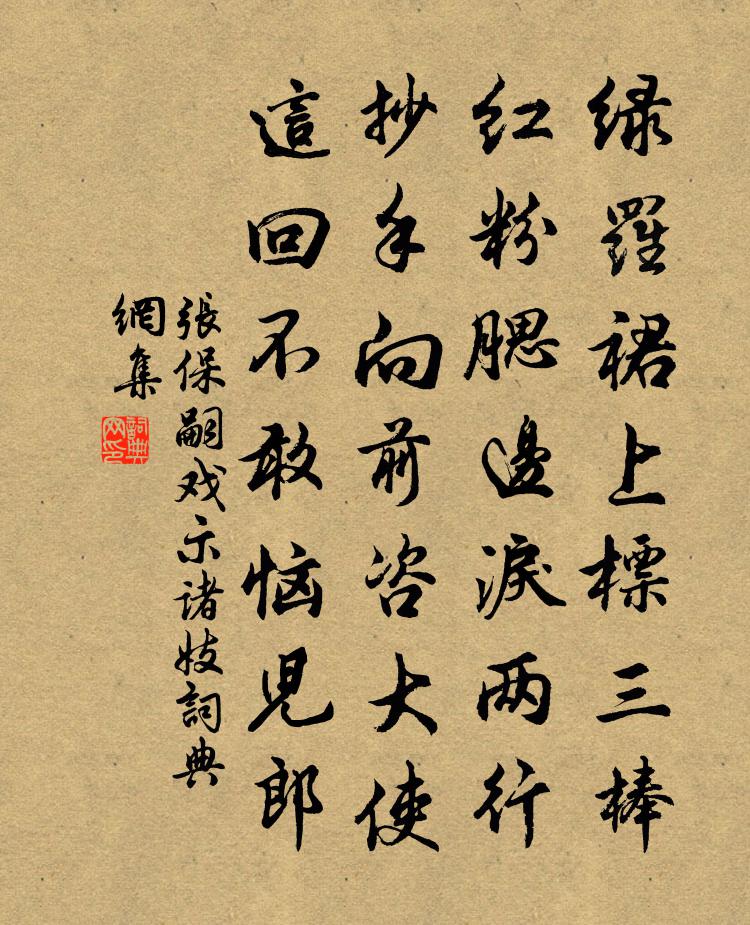 绿羅裙上標三棒
紅粉腮邊淚两行
抄手向前咨大使
這回不敢恼兒郎
張保嗣戏示诸妓詞典
網集
詞典
网印